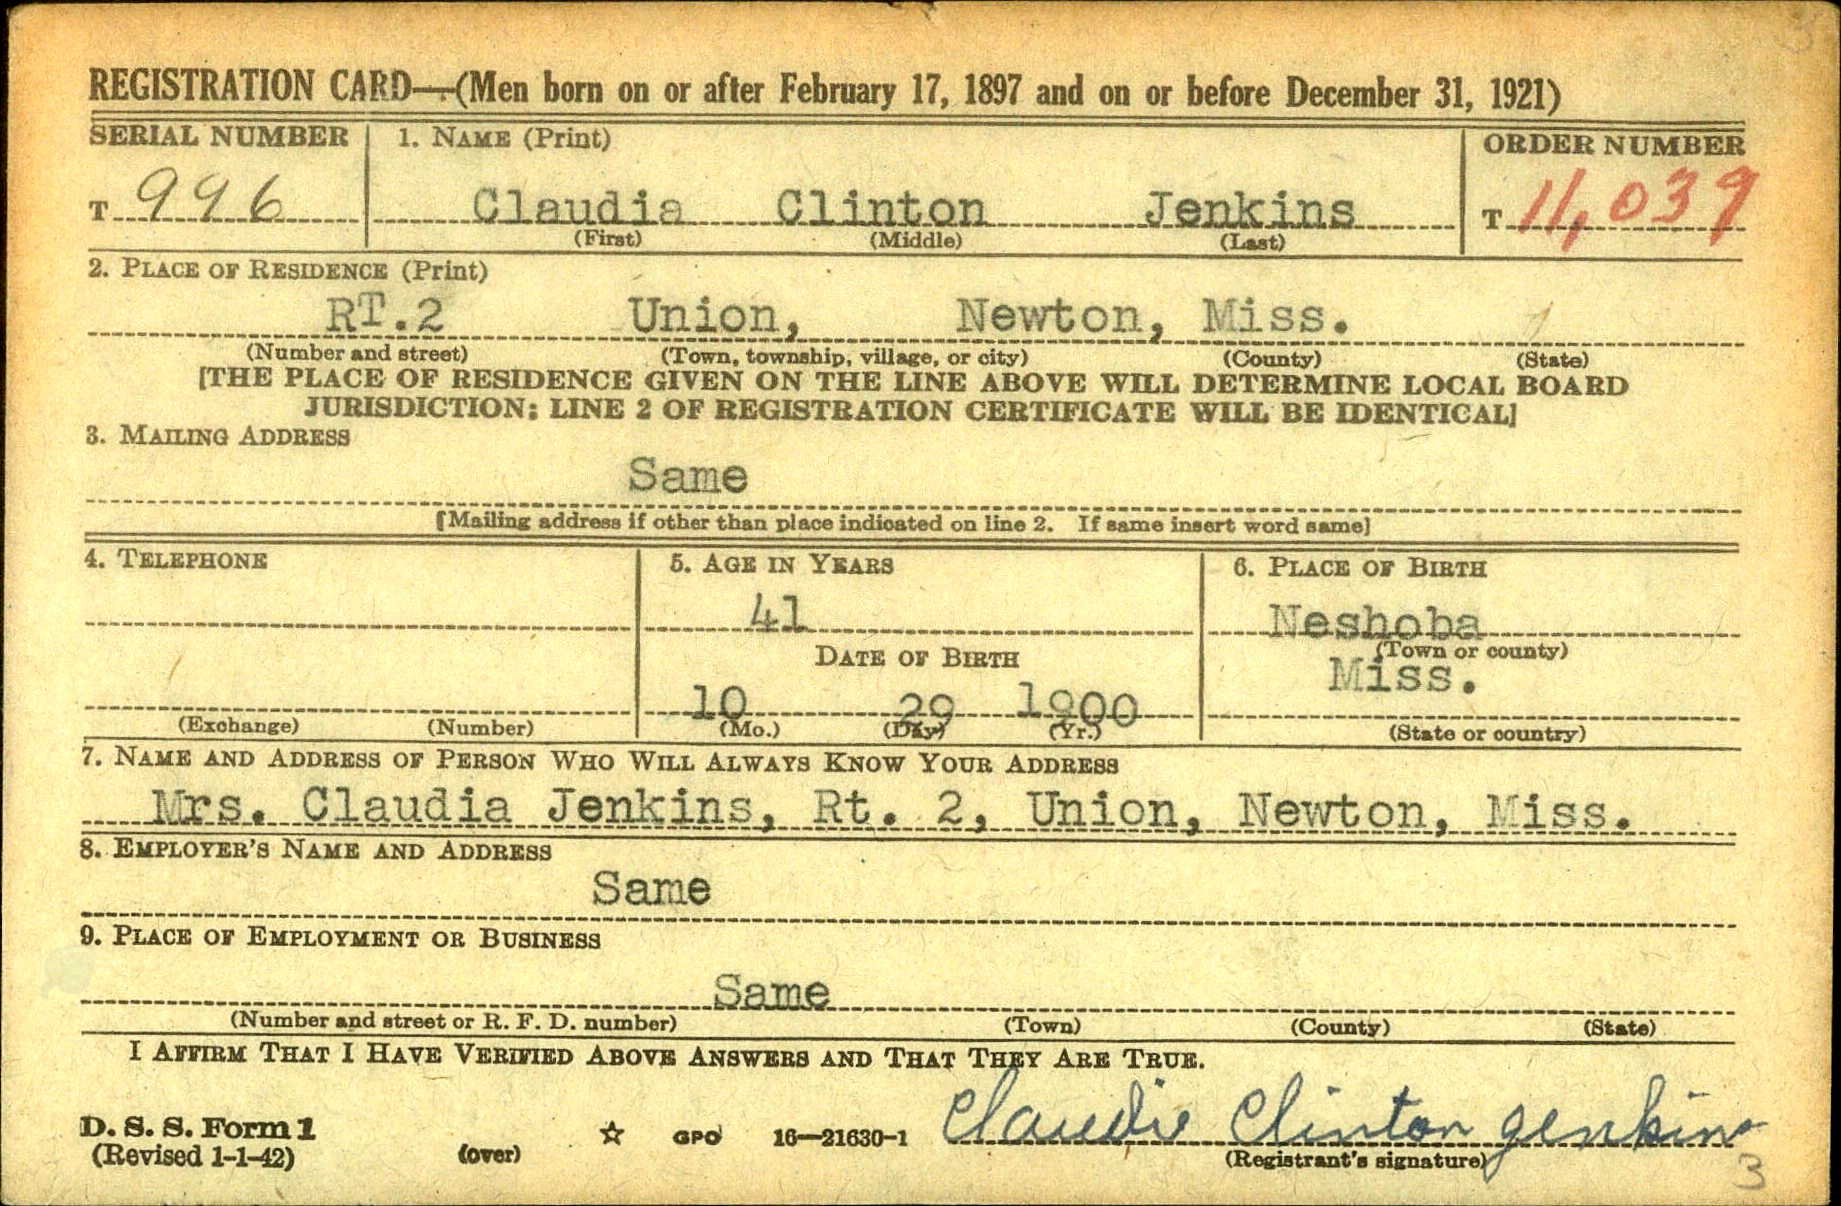 REGISTRATION CARD—(Men born on or after February 17, 1897 and on or before December 31, 1921)
SERIAL NUMBER 1. NAME (Print) ORDER NUMBER
T 996 Claudia Clinton Jenkins T 11,039
(First) (Middle) (Last)
2. PLACE OF RESIDENCE (Print)
RT.2 Union, Newton, Miss.
(Number and street) (Town, township, village, or city) (County) (State)
[THE PLACE OF RESIDENCE GIVEN ON THE LINE ABOVE WILL DETERMINE LOCAL BOARD
JURISDICTION; LINE 2 OF REGISTRATION CERTIFICATE WILL BE IDENTICAL]
3. MAILING ADDRESS
Same
[Mailing address if other than place indicated on line 2. If same insert word same]
4. TELEPHONE 5. AGE IN YEARS 6. PLACE OF BIRTH
41 Neshoba
DATE OF BIRTH (Town or county)
Miss.
10 29 1900
(Exchange) (Number) (Mo.) (Day) (Yr.) (State or country)
7. NAME AND ADDRESS OF PERSON WHO WILL ALWAYS KNOW YOUR ADDRESS
Mrs. Claudia Jenkins, Rt. 2, Union, Newton, Miss.
8. EMPLOYER'S NAME AND ADDRESS
Same
9. PLACE OF EMPLOYMENT OR BUSINESS
Same
(Number and street or R. F. D. number) (Town) (County) (State)
I AFFIRM THAT I HAVE VERIFIED ABOVE ANSWERS AND THAT THEY ARE TRUE.
D. S. S. Form 1
(Revised 1-1-42) (over) ☆ GPO 16—21630-1 Claudie Clinton Jenkins
(Registrant's signature)
3